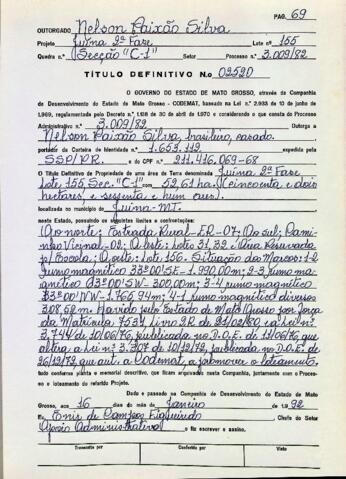 PAG. 69
OUTORGADO Nelson Paixão Silva
Projeto Juina 2ª Fase Lote nº 155
Quadra n.º Secção "C-1" Setor Processo n.º 3.009/82
TÍTULO DEFINITIVO N.o 02520
O GOVERNO DO ESTADO DE MATO GROSSO, através da Companhia
de Desenvolvimento do Estado de Mato Grosso - CODEMAT, baseado na Lei n.º 2.933 de 10 de junho de
1969, regulamentada pelo Decreto n.º 1.188 de 30 de abril de 1970 e considerando o que consta do Processo
Administrativo n.º 3.009/82. Outorga a
Nelson Paixão Silva, brasileiro, casado.
portador da Carteira de Identidade n.º 1.653.119 expedida pela
SSP/PR. e do CPF n.º 211.416.069-68
O Título Definitivo de Propriedade de uma área de Terra denominada Juina 2ª Fase
Lote 155, Sec. "C-1" com 52,61 ha (Cincoenta e dois
hectares, e sessenta e hum ares).
localizada no município de Juina-MT.
neste Estado, possuindo os seguintes limites e confrontações:
Ao norte: Estrada Rural-ER-07; Ao Sul; Cami-
nho Vicinal-02; A leste: Lotes 31, 32 e Área Reservada
p/Escola; A oeste: Lote 156. Situação dos Marcos: 1-2
rumo magnético 33º00'SE-1.990,00m; 2-3 rumo ma-
gnético 3-4 rumo magnético
33º00'NW-1.765,94m; 4-1 rumo magnético diversos
308,52m. Havido pelo Estado de Mato Grosso por força
da Matrícula 7534, Livro 2R de e Lei nº
3.744 de 10/06/76, publicada no D.O.E. de 11/06/76 que
altera a Lei nº 3.307 de 18/12/72, publicada no D.O.E. de
26/12/72, que aut. a Codemat, a promover o loteamento,
tudo conforme planta e memorial descritivo, que ficam arquivados nesta Companhia, juntamente com o Proces-
so e loteamento do referido Projeto.
Dado e passado na Companhia de Desenvolvimento do Estado de Mato
Grosso, aos 16 dias do mês de Janeiro de 1.992
Eu, Enis de Campos Figueiredo Chefe do Setor
Apoio Administrativo o fiz escrever e assino.
Transcrito por Conferido por Visto